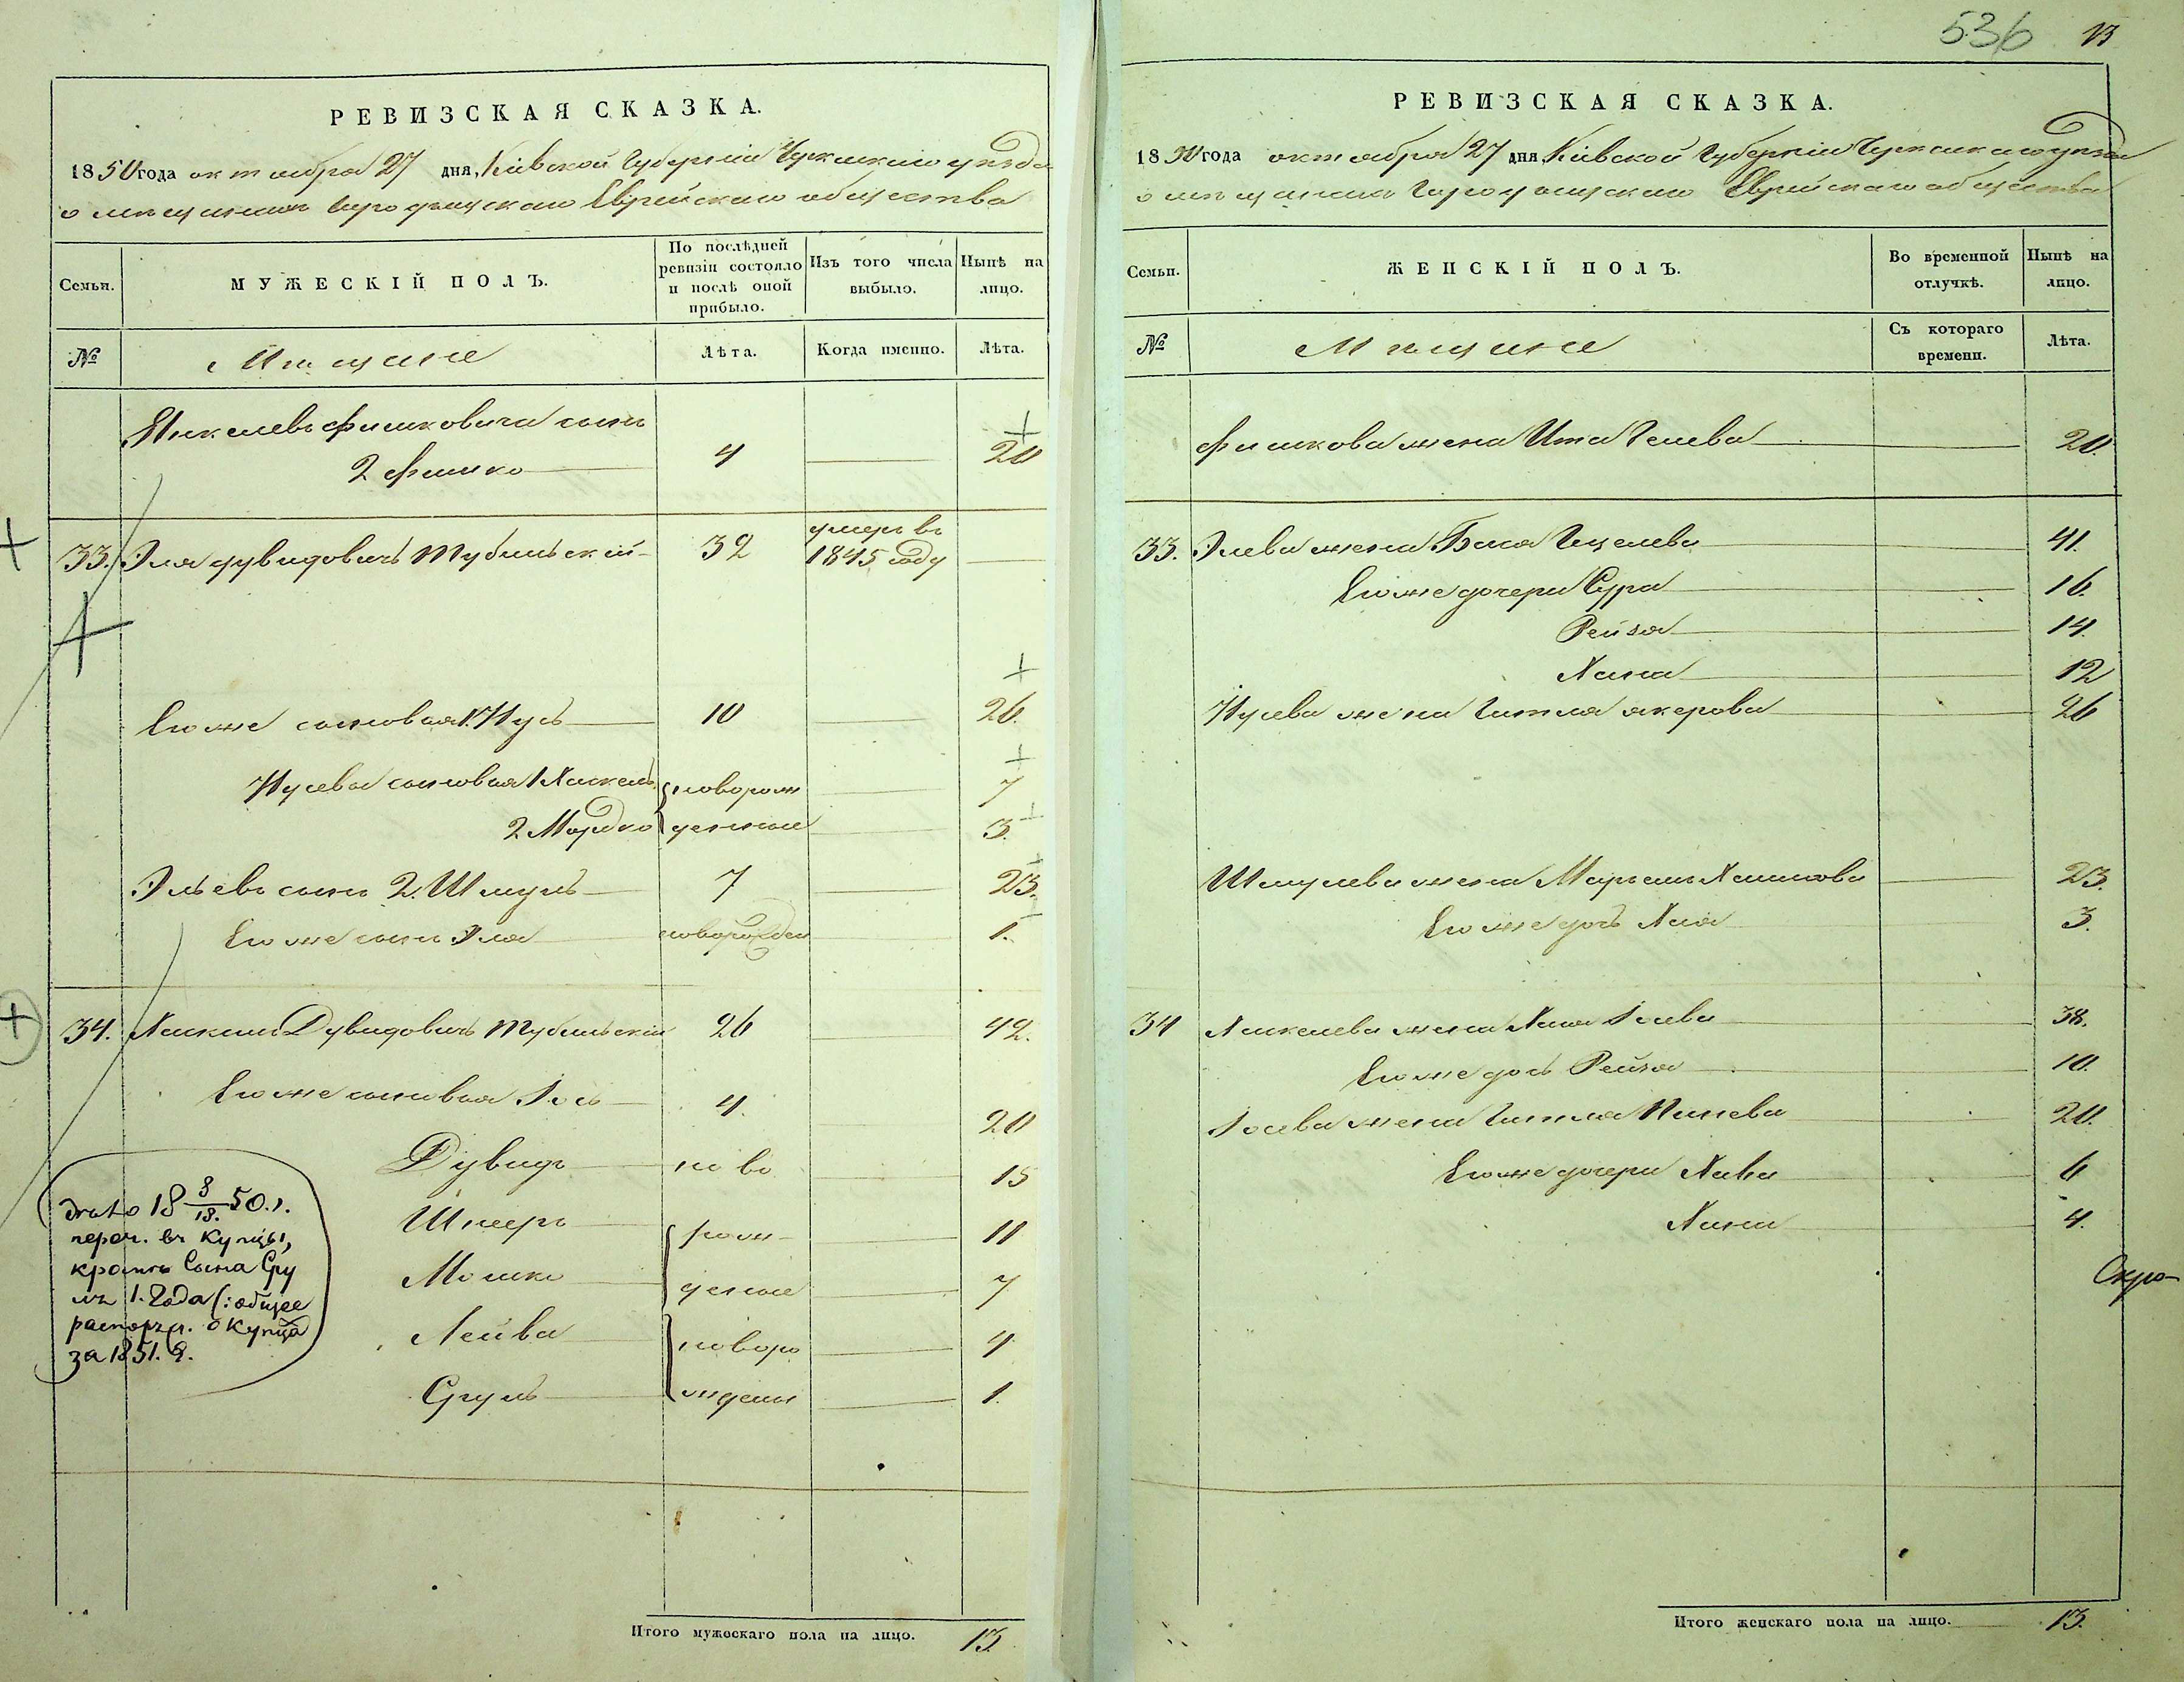 536 13
РЕВИЗСКАЯ СКАЗКА.
1850 года октября 27 дня, Кіевской Губерніи Черкаскаго уѣзда
о мѣщанахъ Городищскаго Еврейскаго общества
Семьи.
МУЖЕСКІЙ ПОЛЪ.
По послѣдней ревизіи состояло и послѣ оной прибыло.
Изъ того числа выбыло.
Нынѣ на лицо.
№
Мѣщане
Лѣта.
Когда именно.
Лѣта.
Фишковича сынъ
2 Фишко 4 20
33. Эля Дувидовичъ Тубельскій 32 умеръ въ 1845 году
Его же сыновья 1. Нусъ 10 26.
Нусева сыновья 1 Хаскель новорож 7
2 Мордко денные 3.
Эльевъ сынъ 2. Шмуль 7 23.
Его же сынъ Эля новорожден 1.
34. Хаскель Дувидовичъ Тубельскій 26 42.
Его же сыновья Іось 4. 20
Дувидъ ново 15
Шнеръ рож 11
Мошко денные 7
Лейба новоро 4
Сруль ждены 1.
18 8/18. 50. г.
переч. въ купцы,
кромѣ сына Сру
ля 1. года (: общее
распоряж. о купца
за 1851. г.
Итого мужескаго пола на лицо. 13.
РЕВИЗСКАЯ СКАЗКА.
1850 года октября 27 дня Кіевской Губерніи Черкаскаго уѣзда
о мѣщанахъ Городищскаго Еврейскаго общества
Семьи.
ЖЕНСКІЙ ПОЛЪ.
Во временной отлучкѣ.
Нынѣ на лицо.
№
Мѣщане
Съ котораго времени.
Лѣта.
Фишкова жена Ита 20.
33. Элева жена Бася 41.
Его же дочери Сура 16.
Рейзя 14.
Хана 12
Нусева жена Гитля 26
Шмулева жена Марьемъ Хаимова 23.
Его же дочь Хая 3.
34 Хаскелева жена Хана Іосева 38.
Его же дочь Рейзя 10.
Іосева жена Гитля 20.
Его же дочери Хава 6
Хана 4.
Скрѣ-
Итого женскаго пола на лицо. 13.